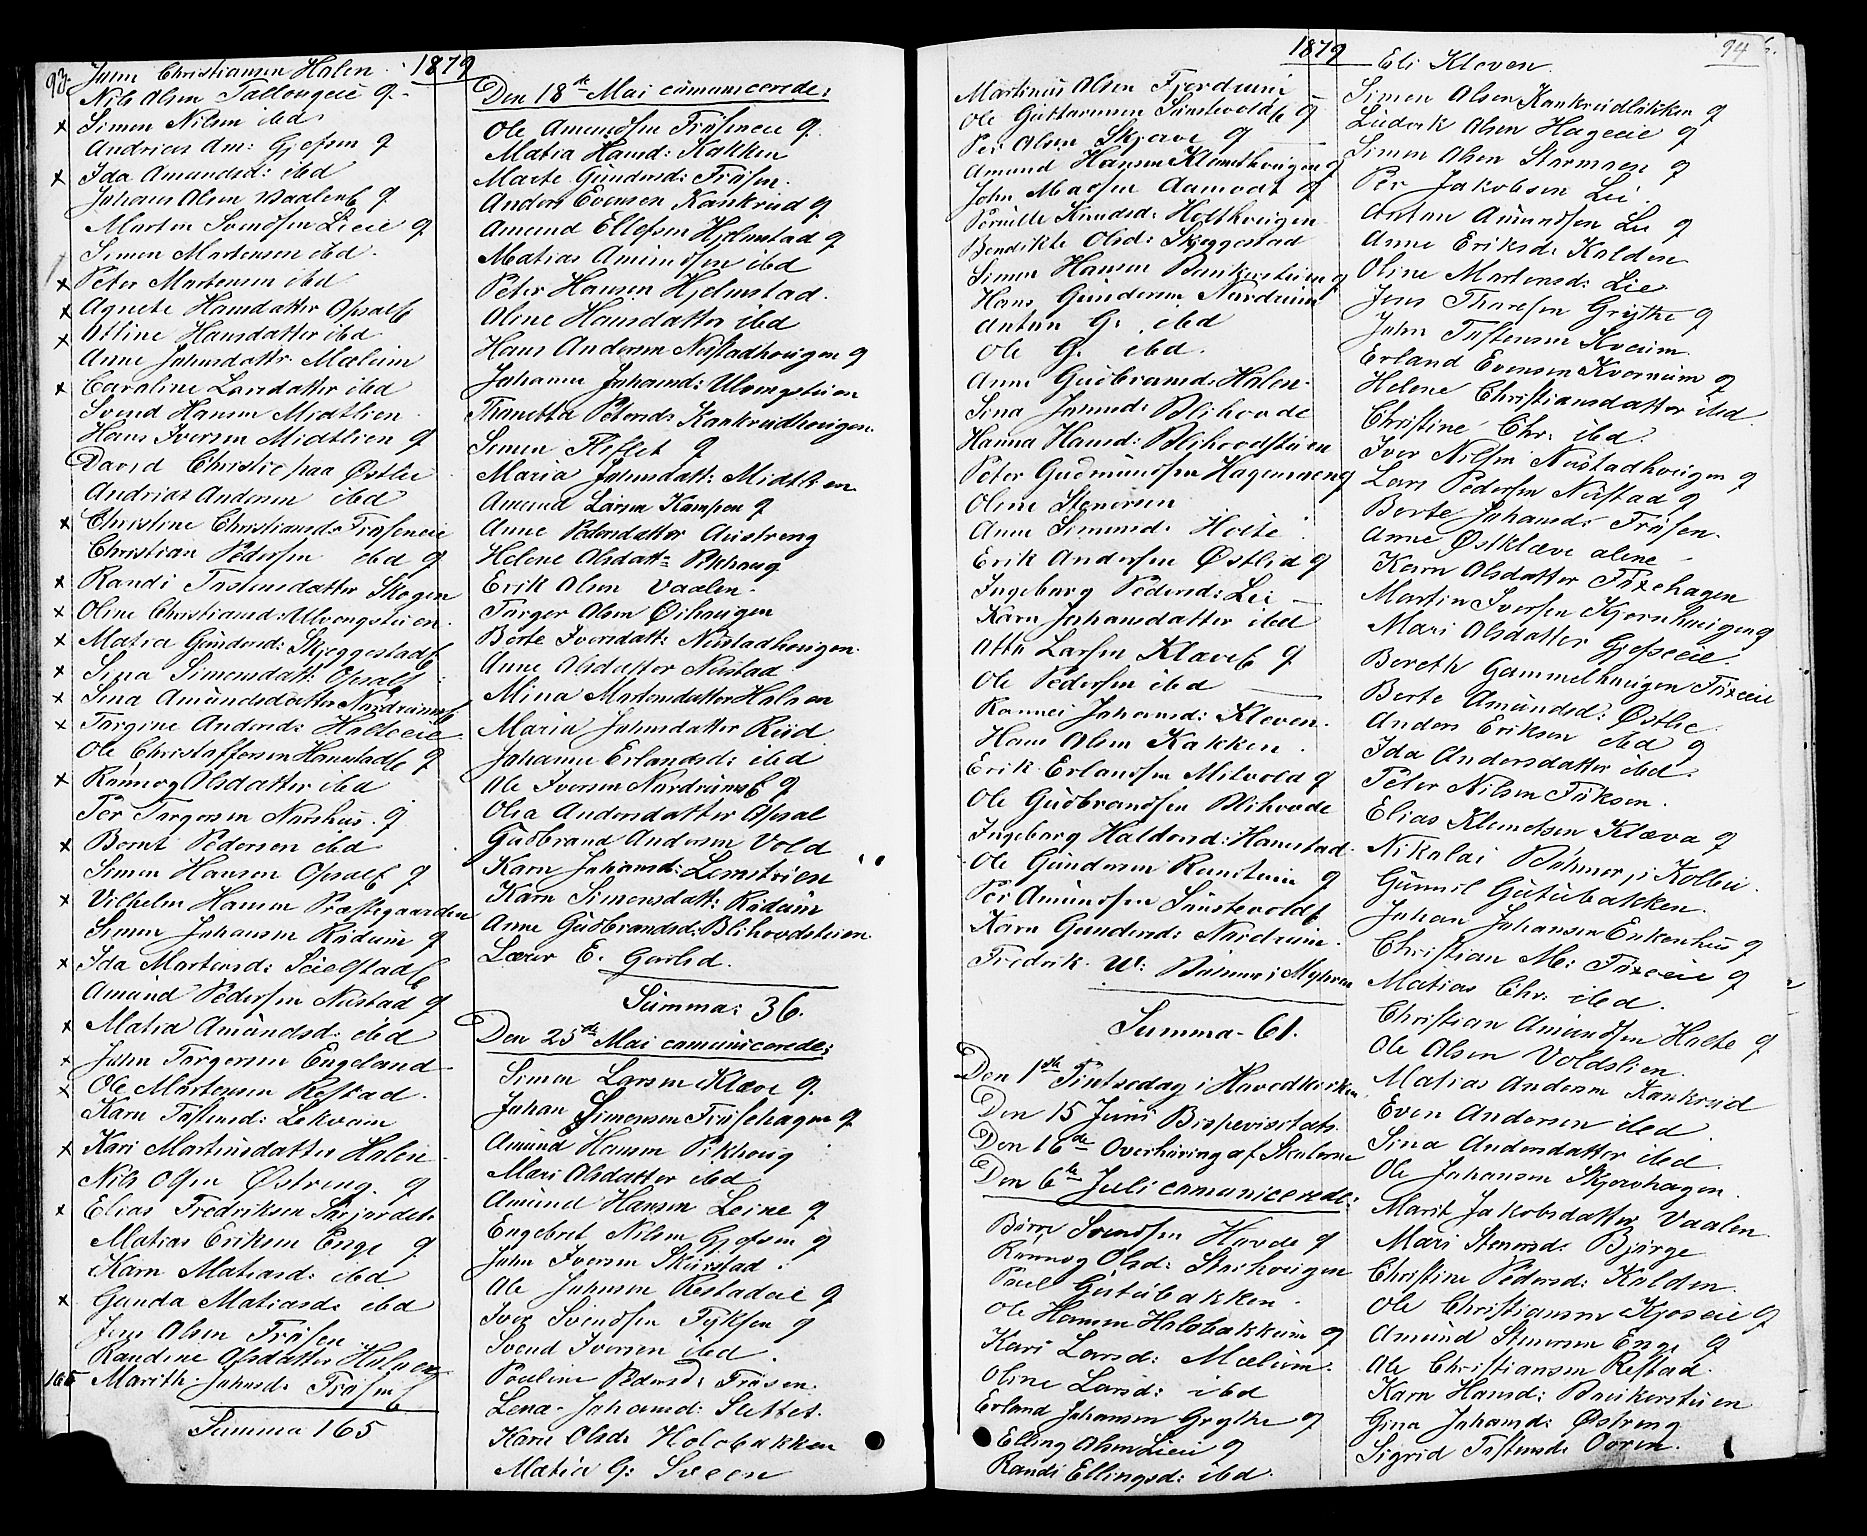 93.
1879
Jens Christiansen Halen
Nils Olsen Tallougeie q.
x Simen Nilsen ibd
Andrias Am: Gjefsen q
x Ida Amundsd: ibd
Johans Olsen Vaalen q
Morten Svendsen Lieie q
Simen Mortensen ibd.
x Peter Mortensen ibd
x Agnete Hansdatter Opsal
x Olline Hansdatter ibd
Anne Johnsdattr Mælum
x Caroline Larsdatter ibd
Svend Hansen Midtlien
Hans Iversen Midtlien q
David Christie paa Østlie
Andrias Andersen ibd
x Christine Christiansd: Frøseneie
Christian Pedersen ibd q
x Randi Tostensdatter Skogen
x Oline Christiansd: Ulvengstuen.
x Matia Gundersd: Skjeggestad
x Sina Simensdatt: Opsal
x Sina Amundsdatter Nordrum
x Torgine Andersd: Holteeie
Ole Christoffersen Hanestad q
x Rønnog Olsdatter ibd
Per Torgersen Narhus. q
x Bernt Pedersen ibd
Simen Hansen Opsal q
x Vilhelm Hansen Præstegaarden
Simen Johansen Rødum q
x Ida Mortensd:
Amund Pedersen Nustad q
x Matia Amundsd: ibd
x John Torgersen Engeland
x Ole Mortensen Restad.
Karn Tostensd: Lekvam
x Kari Martinusdatter Halen
Nils Olsen Østreng. q
x Elias Fredriksen
Matias Eriksen Enge q
Karn Matiasd: ibd
x Gunda Matiasd: ibd
Jens Olsen Frøsen
Randine Olsdatter Halnen
165 Marith Johnsd: Frøsen
Summa 165
Den 18de Mai comunicerede:
Ole Amundsen Frøseneie q.
Matia Hansd: Kakken
Marte Gundersd: Frøsen.
Anders Evensen Kankrud q
Amund Ellefsen Hjelmstad q
Matias Amundsen ibd
Peter Hansen Hjelmstad.
Oline Hansdatter ibd
Hans Andersen Nustadhougen q
Johanne Johansd: Ulvengstuen
Thonetta Petersd: Kankrudhougen.
Simen Floflet q
Maria Johnsdatt: Midtlien
Amund Larsen Kampen q
Anne Pedersdatter Austreng
Helene Olsdatt: Pikhaug
Erik Olsen Vaalen.
Torger Olsen Øihaugen
Berte Iversdatt: Nustadhougen.
Anne Olsdatter Nustad
Mina Mortensdatter Halnen
Maria Johnsdatter Rud
Johanne Erlandsd: ibd
Ole Iversen Nordrum q
Olea Andersdatter Opsal
Gudbrand Andersen Vold
Karn Johansd: Lemstuen
Karn Simensdatt: Rødum
Anne Gudbrandsd: Blihovdstuen.
Lærer E. Garlid.
Summa: 36.
Den 25de Mai comunicerede:
Simen Larsen Kleve q.
Johan Simensen Frøsehagen q
Amund Hansen Pikhoug
Mari Olsdatter ibd
Amund Hansen Leine q
Engebret Nilsen Gjefsen q
John Iversen Skurstad.
Ole Johnsen Restadeie q
Iver Svendsen Fyksen q
Svend Iversen ibd.
Pauline Pedersd: Frøsen.
Lena Johansd: Slettet.
Kari Olsd: Holobakken
Matia G: Sveen
94
1879
Martinus Olsen Fjerdrum
Ole Guttormsen Sønstevold q
Per Olsen Skjæve q
Amund Hansen Klomsthougen q
John Monsen Aamodt q
Pernille Knudsd: Holthougen
Bendikte Olsd: Skjeggestad
Simen Hansen Bunkerstuen q
Hans Gundersen Nordrum
Anton G. ibd
Ole G. ibd.
Anne Gudbrandsd: Halen.
Sina Jensd: Blihovde
Hanna Hansd: Blihovdstuen
Peter Gudmundsen Hagemoen q
Oline Stenersen
Anne Simensd: Holte
Erik Andersen Østlid q
Ingeborg Pedersd: Lie
Karn Johansdatter ibd
Otto Larsen Klæve q
Ole Pedersen ibd
Rannei Johansd: Kleven.
Hans Olsen Kakken.
Erik Erlandsen Milvold q
Ole Gudbrandsen Blihovde
Ingeborg Haldorsd: Hanestad.
Ole Gundersen Ramstuen q
Per Amundsen Sønstevold
Karn Gundersd: Nordrum.
Fredrik W: Bøhmer, Myhren
Summa. 61.
Den 1ste Pintsedag i Hovedkirken
Den 15 Juni Bispevisitats.
Den 16de Overhøring af Skolerne
Den 6te Juli comunicerede:
Børn Svendsen Hovde q
Rønnog Olsd: Storhougen
Poul Gutubakken.
Ole Hansen Holobakken q
Kari Larsd: Mælum.
Oline Larsd: ibd
Erland Johansen Grytke q
Elling Olsen Lieie q
Randi Ellingsd: ibd.
Eli Kleven.
Simen Olsen Kankrudbakken q
Ludvik Olsen Hageeie q
Simen Olsen Stormoen q
Per Jakobsen Lie.
Anton Amundsen Lie q
Anne Eriksd: Kolden
Oline Mortensd: Lie
Jens Thoresen Grytke q
John Tostensen Kveum.
Erland Evensen Kvernum q
Helene Christiansdatter ibd.
Christine Chr: ibd.
Iver Nilsen Nustadhougen q
Lars Pedersen Nustad q
Berte Johansd: Frøsen.
Anne Østklæve alene
Karn Olsdatter Foxehagen
Martin Iversen Kjernhougen q
Mari Olsdatter Gjefseeie.
Bereth Gammelhougen Foxeeie
Berte Amundsd: Østlie
Anders Eriksen ibd q
Ida Andersdatter ibd.
Peter Nilsen Fuksen.
Elias Klemetsen Klæva q
Nikolai Bøhmer, i Kollbu.
Gunnil Gutubakken.
Johan Johansen Enkenhus q
Christian M: Foxeeie q
Matias Chr: ibd.
Christian Amundsen Holte q
Ole Olsen Voldslien.
Matias Andersen Kankrud
Even Andersen ibd.
Sina Andersdatter ibd.
Ole Johansen Skjævehagen.
Marit Jakobsdatter Vaalen
Mari Stenersd: Bjørge
Christine Pedersd: Kolden.
Ole Christiansen Kjoseie q
Amund Stenersen Enge q
Ole Christiansen Restad.
Karn Hansd: Bunkerstuen
Gina Johansd: Østreng
Sigrid Tostensd: Ooren.